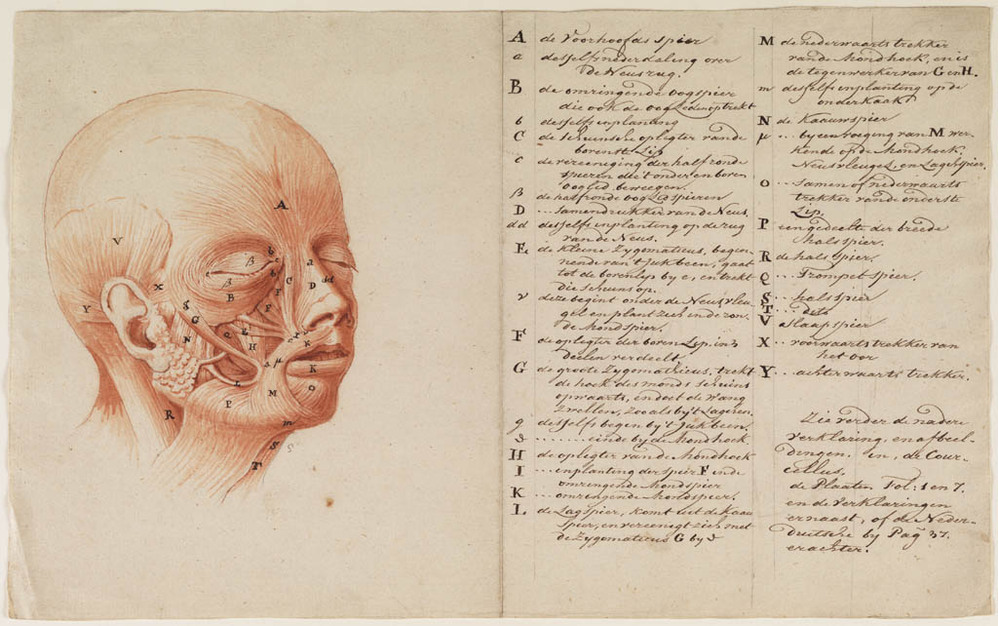 A de Voorhoofds spier
a desselfs nederdaling over
de Neus rug.
B de omringende oogspier
die ook de oogLeden optrekt
b desselfs inplanting
C de scheunsche opligter van de
bovenste Lip
c de vereeneging der half ronde
spieren die 't onder en boven
ooglid beweegen.
β de halfronde oogLid spieren
D ... Samendrukker van de Neus
dd desselfs inplanting op de rug
van de Neus.
E de kleine Zygomaticus, begin-
nende van 't Jukbeen, gaat
tot de bovenlip by e, en trekt
die scheuns op.
ν deze begint onder de Neusvleu
gel en plant zich in de ron-
de Mondspier.
F de opligter der boven Lip, in 3
deelen verdeelt
G de groote Zygomaticus, trekt
de hoek des monds scheuns
opwaarts, en doet de Wang
zwellen, zoo als by 't Lageren.
g desselfs begin by 't Jukbeen.
ϑ ........ einde by de Mondhoek
H de opligter van de Mondhoek
I ... inplanting der spier F in de
omringende Mondspier
K ... omringende Mondspier.
L de Lagspier, komt uit de Kaau
spier, en vereenigt zich met
de Zygomaticus G by ϑ
M de nederwaarts trekker
van de Mondhoek, en is
de tegenwerker van G en H.
m desselfs inplanting op de
onderkaak
N de Kaauwspier
μ ... byeenvoeging van M wer-
kende op de Mondhoek,
Neusvleugel, en Lagspier.
O ... Samen of nederwaarts
trekker van de onderste
Lip.
P een gedeelte der breede
halsspier.
R de halsspier.
Q ... Trompetspier.
S ... halsspier
T ... dito
V a Slaapspier
X ... voorwaarts trekker van
het oor
Y ... achterwaarts trekker.
Zie verder de nadere
Verklaring, en afbeel-
dingen. in, de Cour-
cellus,
de Plaaten Fol: 1 en 7.
en de Verklaringen
ernaast, of de Neder-
duitsche by Pag 37.
erachter.
A
V
X
Y
a
b
b
β
β
B
C
D
dd
F
F
F
g
G
N
E
e
H
I
K
K
L
μ
M
O
P
R
m
S
T